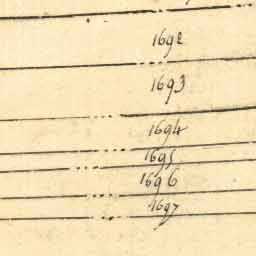 1692
1693
1694
1695
1696
1697